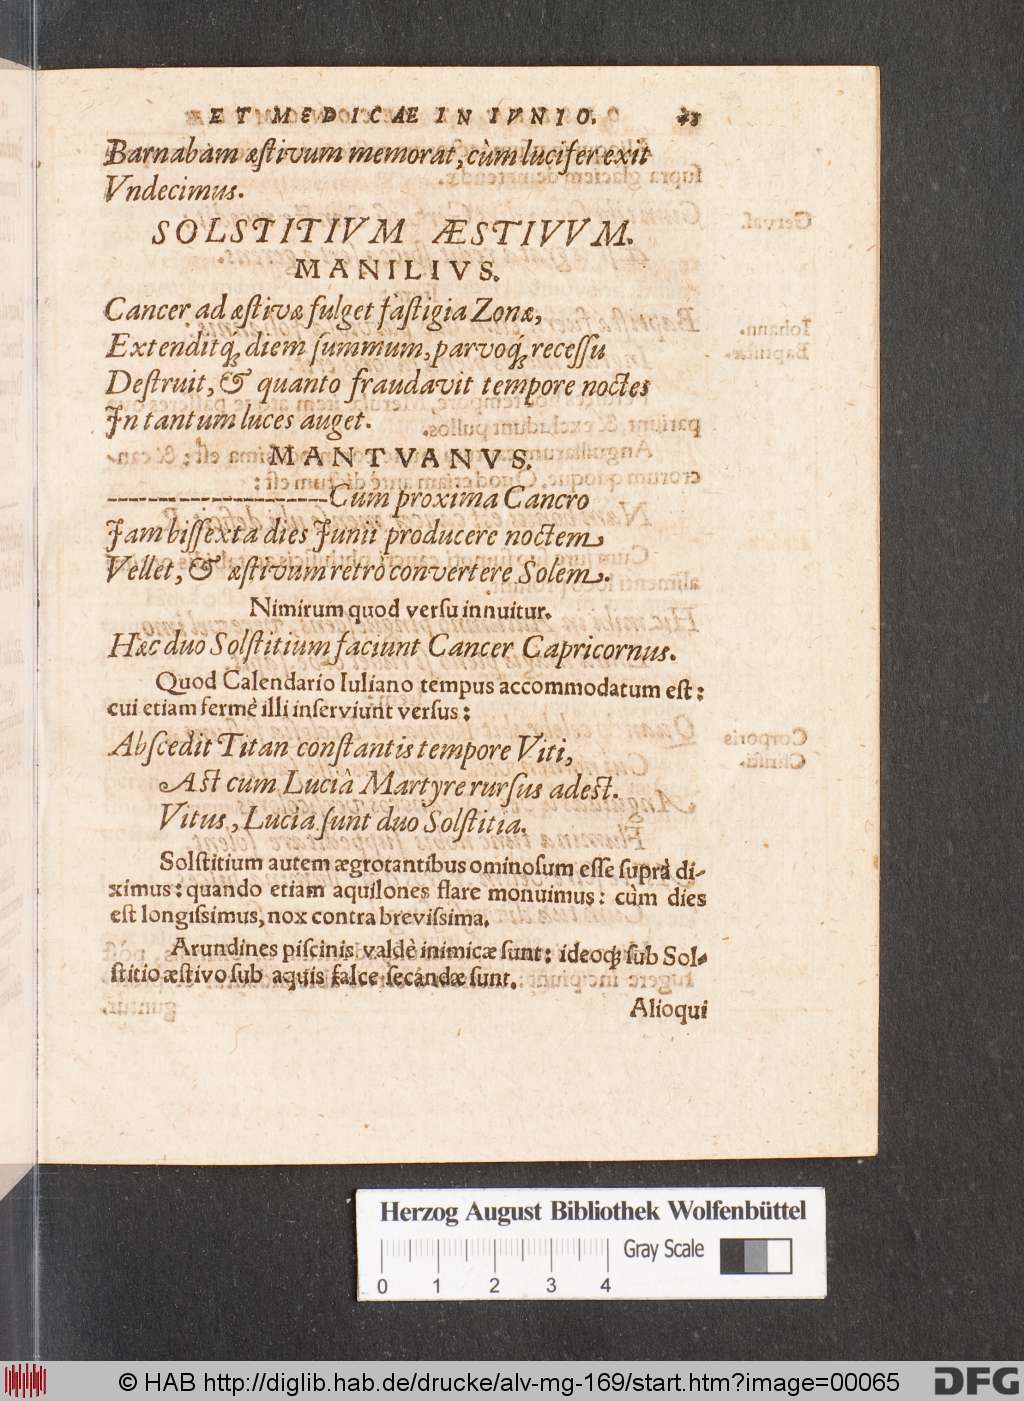 ET MEDICAE IN IVNIO.
Barnabam æstivum memorat, cùm lucifer exit
Vndecimus.
SOLSTITIVM ÆSTIVVM.
MANILIVS.
Cancer ad æstivæ fulget fastigia Zonæ,
Extenditq́; diem ſummum, parvoq́; receſſu
Deſtruit, & quanto fraudavit tempore noctes
In tantum luces auget.
MANTVANVS.
--------------------Cum proxima Cancro
Jam biſſexta dies Junii producere noctem
Vellet, & æstivum retro convertere Solem.
Nimirum quod verſu innuitur.
Hæc duo Solſtitium faciunt Cancer Capricornus.
Quod Calendario Iuliano tempus accommodatum eſt:
cui etiam fermè illi inſerviunt verſus:
Abſcedit Titan conſtantis tempore Viti,
Aſt cum Lucià Martyre rurſus adeſt.
Vitus, Lucia ſunt duo Solſtitia.
Solſtitium autem ægrotantibus ominoſum eſſe ſuprà di-
ximus: quando etiam aquilones flare monuimus: cùm dies
eſt longiſsimus, nox contra breviſsima.
Arundines piſcinis valdè inimicæ ſunt: ideoq́; ſub Sol-
ſtitio æſtivo ſub aquis falce ſecandæ ſunt.
Alioqui
Herzog August Bibliothek Wolfenbüttel
Gray Scale
0 1 2 3 4
© HAB http://diglib.hab.de/drucke/alv-mg-169/start.htm?image=00065
DFG